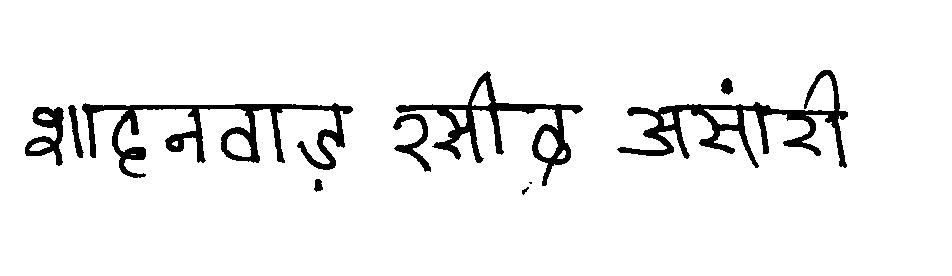 शाहनवाड़ रसीद असांरी